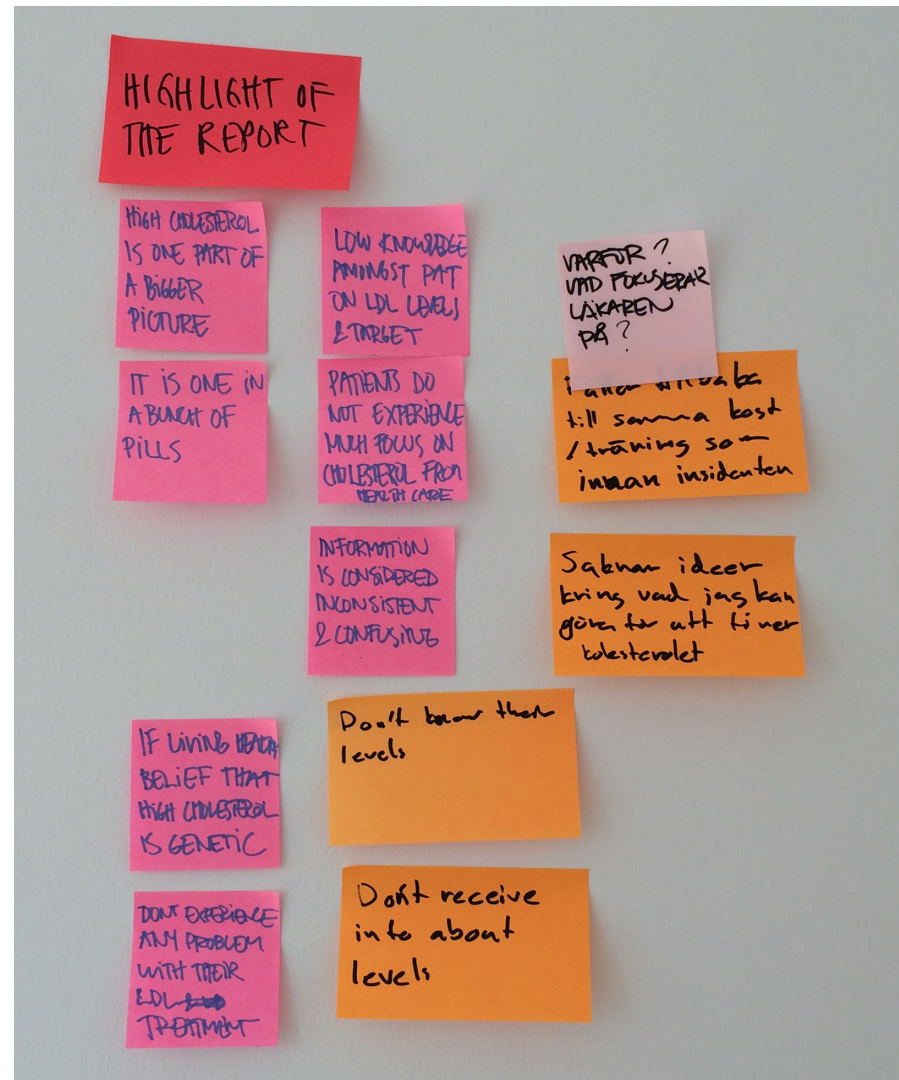 HIGHLIGHT OF
THE REPORT
HIGH CHOLESTEROL
IS ONE PART OF
A BIGGER
PICTURE
IT IS ONE IN
A BUNCH OF
PILLS
LOW KNOWLEDGE
AMONGST PAT
ON LDL LEVELS
& TARGET
PATIENTS DO
NOT EXPERIENCE
MUCH FOCUS ON
CHOLESTEROL FROM
HEALTH CARE
INFORMATION
IS CONSIDERED
INCONSISTENT
& CONFUSING
VARFÖR?
VAD FOKUSERAR
LÄKAREN
PÅ?
till samma kost
/träning som
innan insidenten
Saknar ideer
kring vad jag kan
göra för att få ner
kolesterolet
IF LIVING
BELIEF THAT
HIGH CHOLESTEROL
IS GENETIC
DONT EXPERIENCE
ANY PROBLEM
WITH THEIR
LDL
TREATMENT
Don't know their
levels
Don't receive
info about
levels